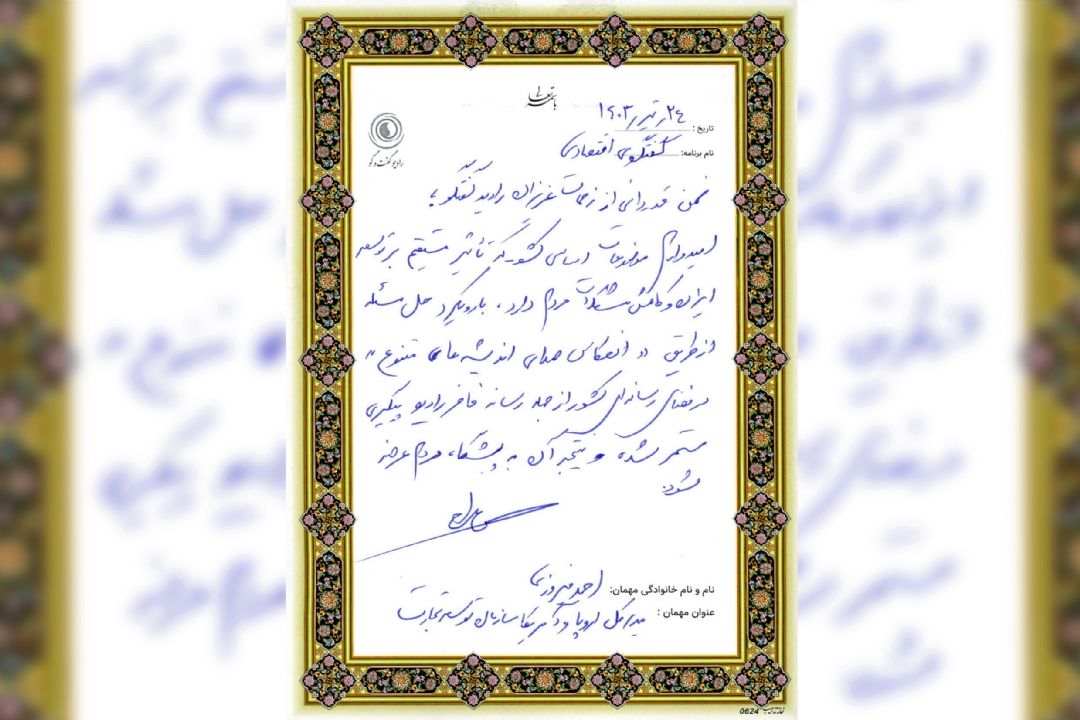 باسمه تعالی
رادیو گفت و گو
تاریخ: ۲۴ ر تیر ر ۱۴۰۳
نام برنامه: گفتگوی اقتصادی
ضمن قدردانی از زحمات عزیزان رادیو گفتگو؛
امیدوارم موضوعات اساسی کشور که تأثیر مستقیم بر توسعه
ایران و کاهش مشکلات مردم دارد، با رویکرد حل مسئله
از طریق "انعکاس صدای اندیشه های متنوع"
در فضای رسانه ای کشور از جمله رسانه فاخر رادیو پیگیری
مستمر شده و نتیجه آن به پیشگاه مردم عرضه
شود.
نام و نام خانوادگی مهمان: احمد فیروزی
عنوان مهمان: مدیرکل اروپا و آمریکا سازمان توسعه تجارت
0624